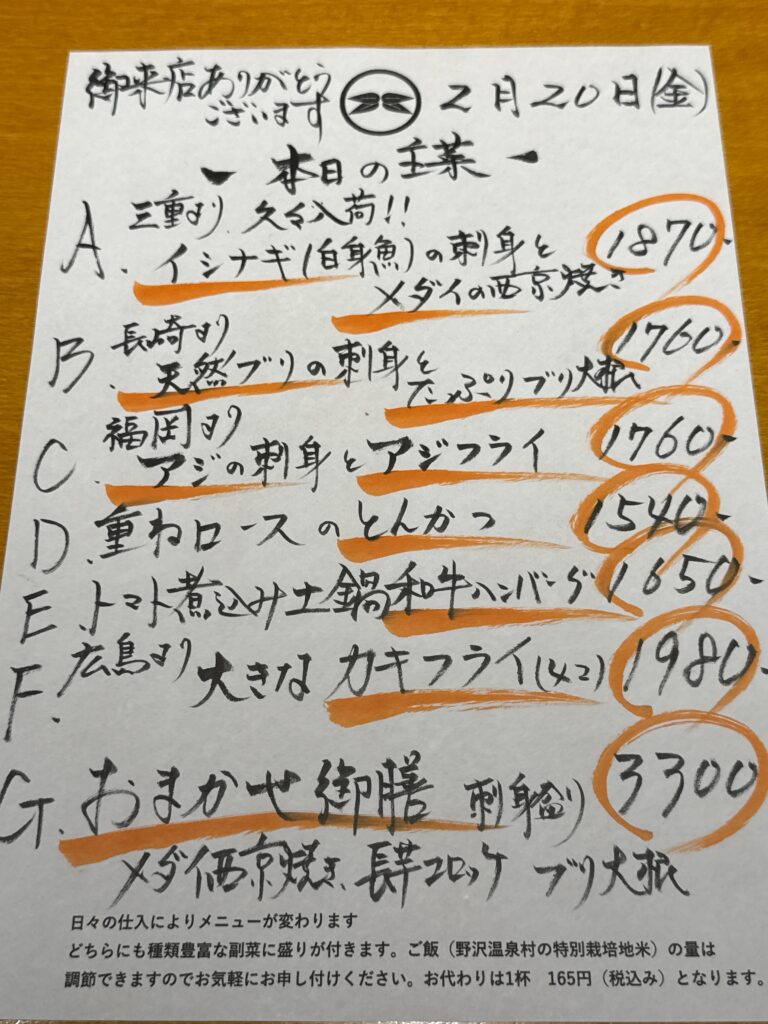 御来店ありがとう
ございます
2月20日(金)
本日の主菜
A. 三重より 久々入荷!!
イシナギ(白身魚)の刺身と 1870-
メダイの西京焼き
B. 長崎より
天然ブリの刺身と 1760-
たっぷりブリ大根
C. 福岡より
アジの刺身とアジフライ 1760-
D. 重ねロースのとんかつ 1540-
E. トマト煮込み土鍋和牛ハンバーグ 1650-
F. 広島より 大きなカキフライ(4コ) 1980-
G. おまかせ御膳 刺身盛り 3300
メダイ西京焼き、長芋コロッケ ブリ大根
日々の仕入によりメニューが変わります
どちらにも種類豊富な副菜に盛りが付きます。ご飯(野沢温泉村の特別栽培地米)の量は
調節できますのでお気軽にお申し付けください。お代わりは1杯 165円(税込み)となります。